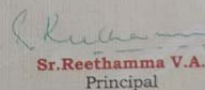 Sr.Reethamma V.A.
Principal